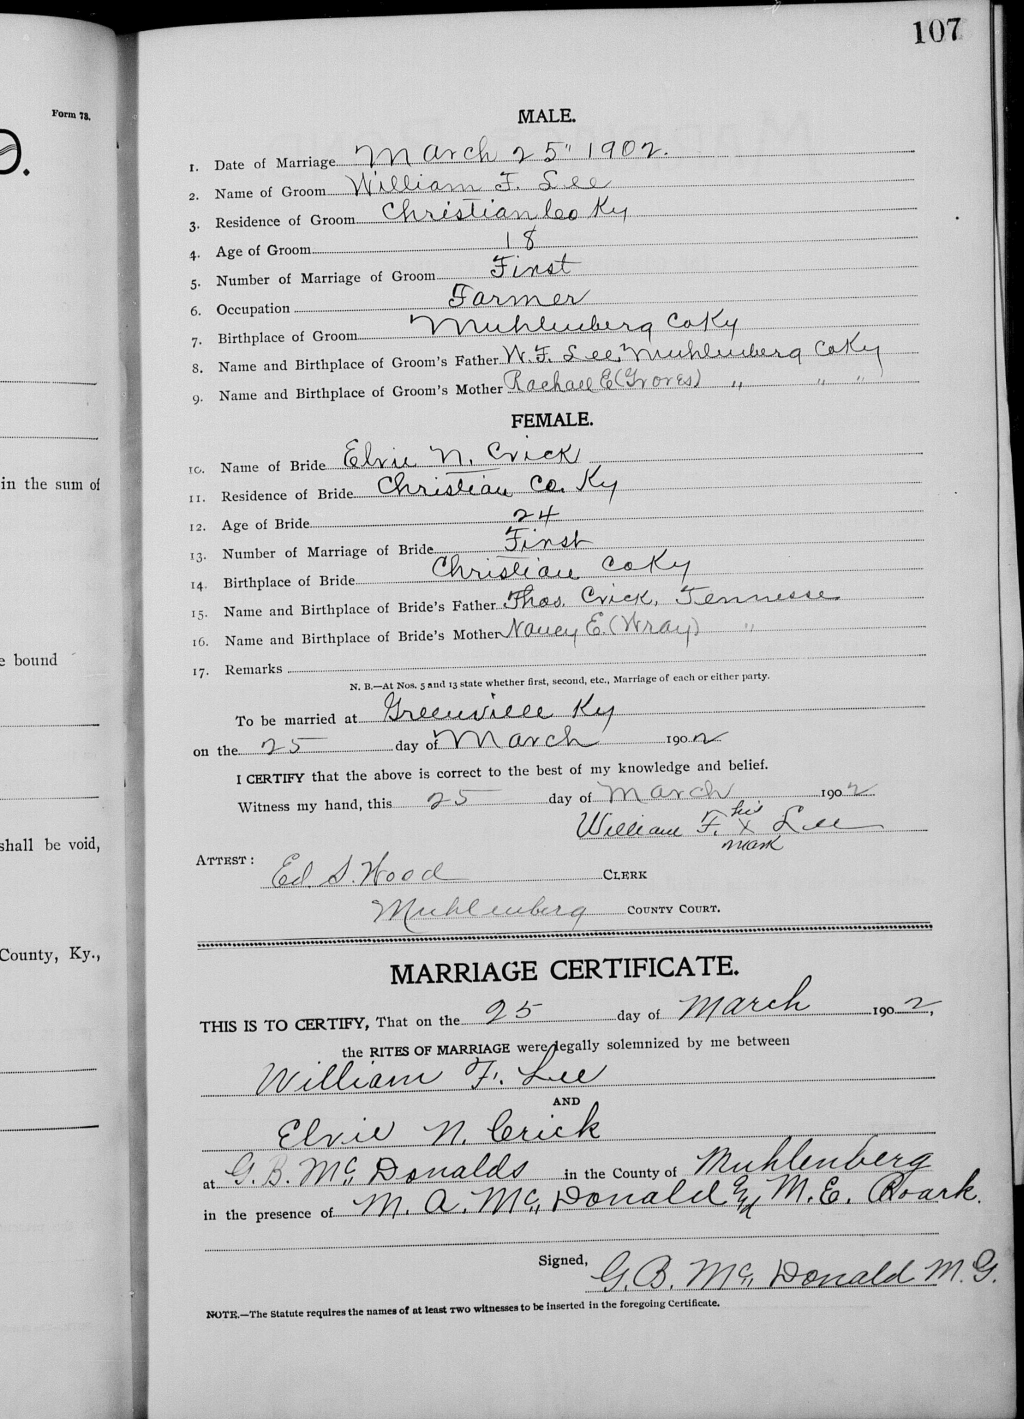 107
Form 78.
MALE.
1. Date of Marriage March 25" 1902.
2. Name of Groom William F. Lee
3. Residence of Groom Christian Co Ky
4. Age of Groom 18
5. Number of Marriage of Groom First
6. Occupation Farmer
7. Birthplace of Groom Muhlenberg Co Ky
8. Name and Birthplace of Groom's Father W. F. Lee, Muhlenberg Co Ky
9. Name and Birthplace of Groom's Mother Rachael E (Groves) " " "
FEMALE.
10. Name of Bride Elvie N. Crick
in the sum of
11. Residence of Bride Christian Co. Ky
12. Age of Bride 24
13. Number of Marriage of Bride First
14. Birthplace of Bride Christian Co Ky
15. Name and Birthplace of Bride's Father Thos. Crick, Tennesse
16. Name and Birthplace of Bride's Mother Nancy E. (Wray) "
e bound
17. Remarks
N. B.—At Nos. 5 and 13 state whether first, second, etc., Marriage of each or either party.
To be married at Greenville Ky
on the 25 day of March 1902
I CERTIFY that the above is correct to the best of my knowledge and belief.
Witness my hand, this 25 day of March 1902
William F. his x mark Lee
shall be void,
ATTEST:
Ed. S. Wood CLERK
Muhlenberg COUNTY COURT.
County, Ky.,
MARRIAGE CERTIFICATE.
THIS IS TO CERTIFY, That on the 25 day of March 1902,
the RITES OF MARRIAGE were legally solemnized by me between
William F. Lee
AND
Elvie N. Crick
at G. B. Mc Donalds in the County of Muhlenberg
in the presence of M. A. Mc Donald and M. E. Roark.
Signed, G. B. Mc Donald M. G.
NOTE.—The Statute requires the names of at least TWO witnesses to be inserted in the foregoing Certificate.